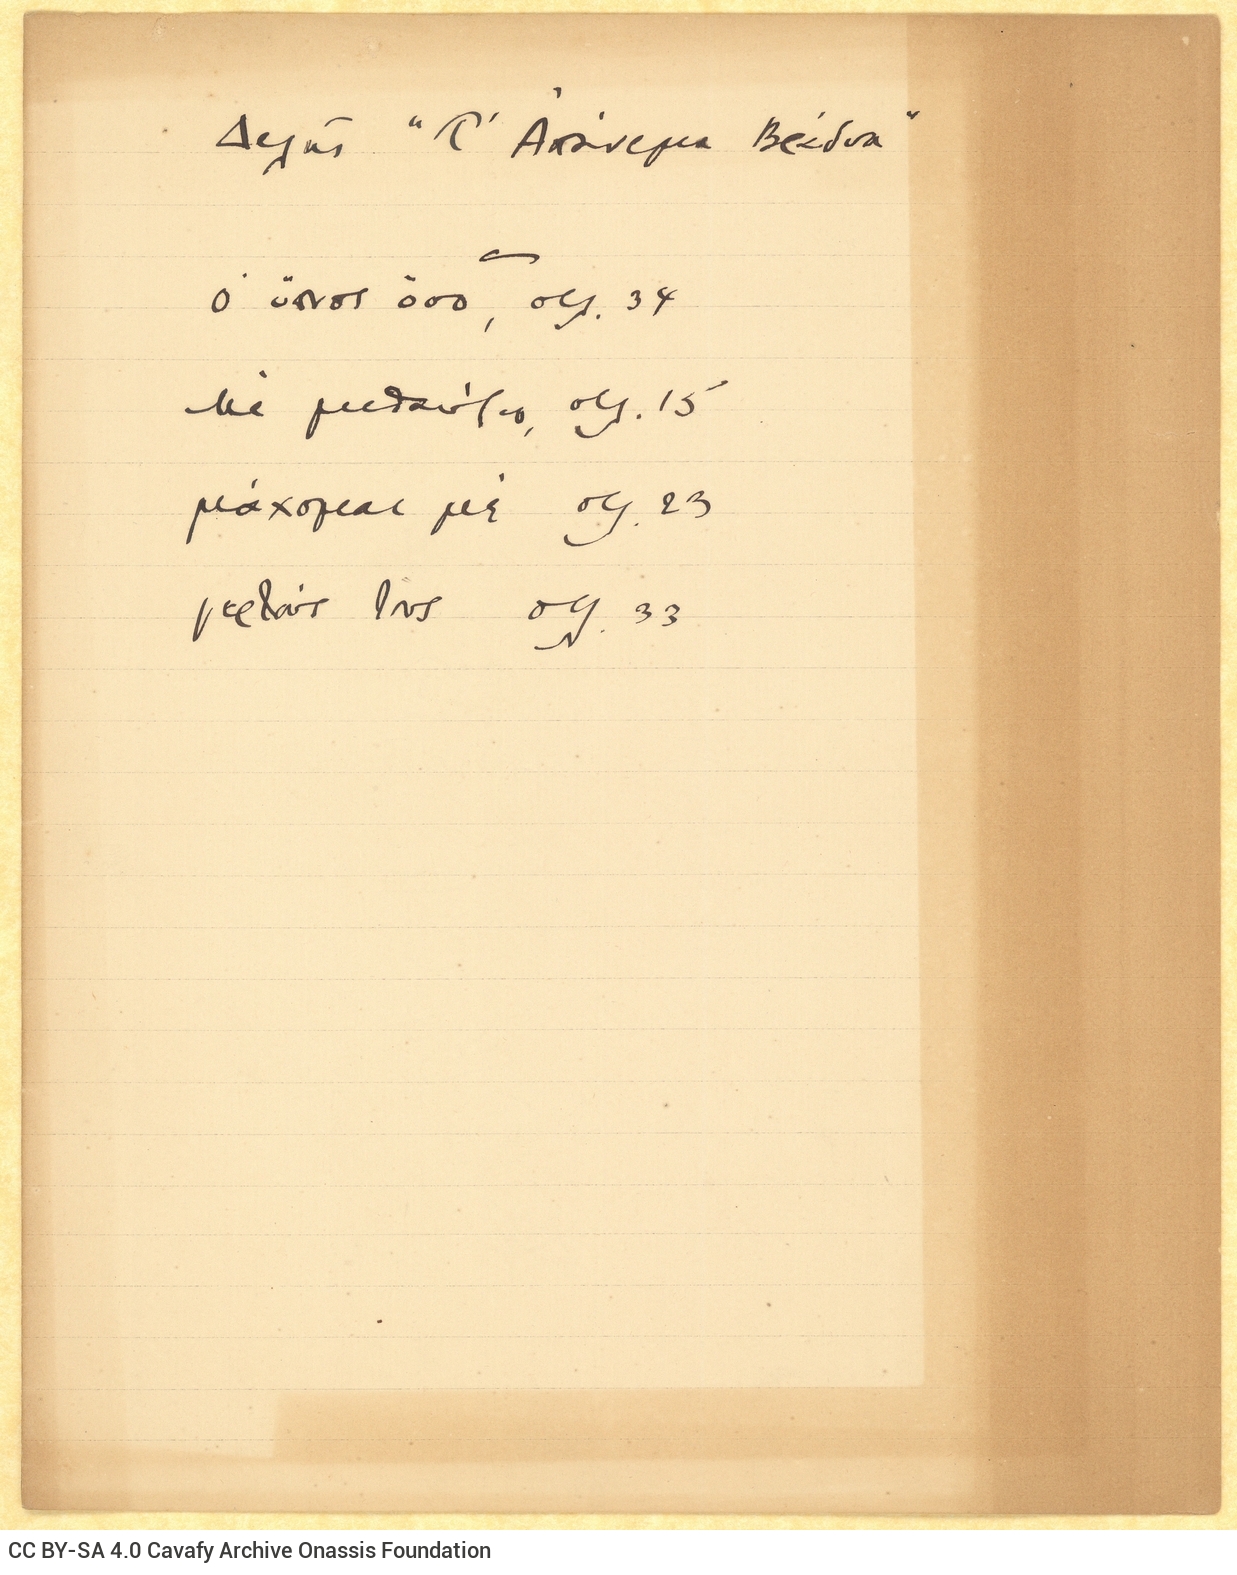 Δελῆς "Τ' Ἀπάνεμα Βράδυα"
ὁ ὕπνος ὅσο, σελ. 34
Μὲ μεθαύριο, σελ. 15
μάχομαι μὲ σελ. 23
σελ. 33
CC BY-SA 4.0 Cavafy Archive Onassis Foundation